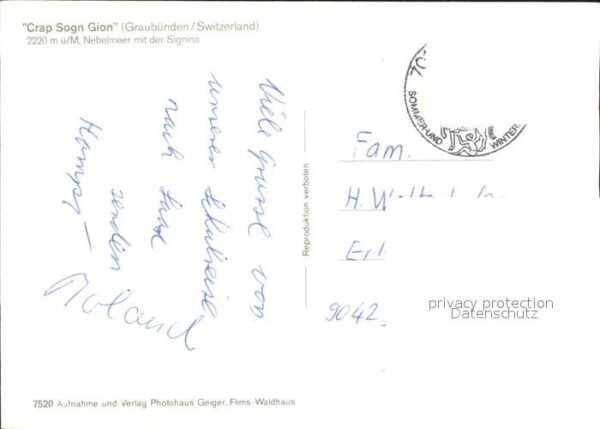 "Crap Sogn Gion" (Graubünden/Switzerland)
2220 m ü/M, Nebelmeer mit der Signina
SOMMER-UND WINTER
Viele Grüsse von
unserer Schulreise
nach
senden
Roland
Reproduktion verboten
Fam.
H. W
9042
privacy protection
Datenschutz
7520 Aufnahme und Verlag Photohaus Geiger, Flims-Waldhaus